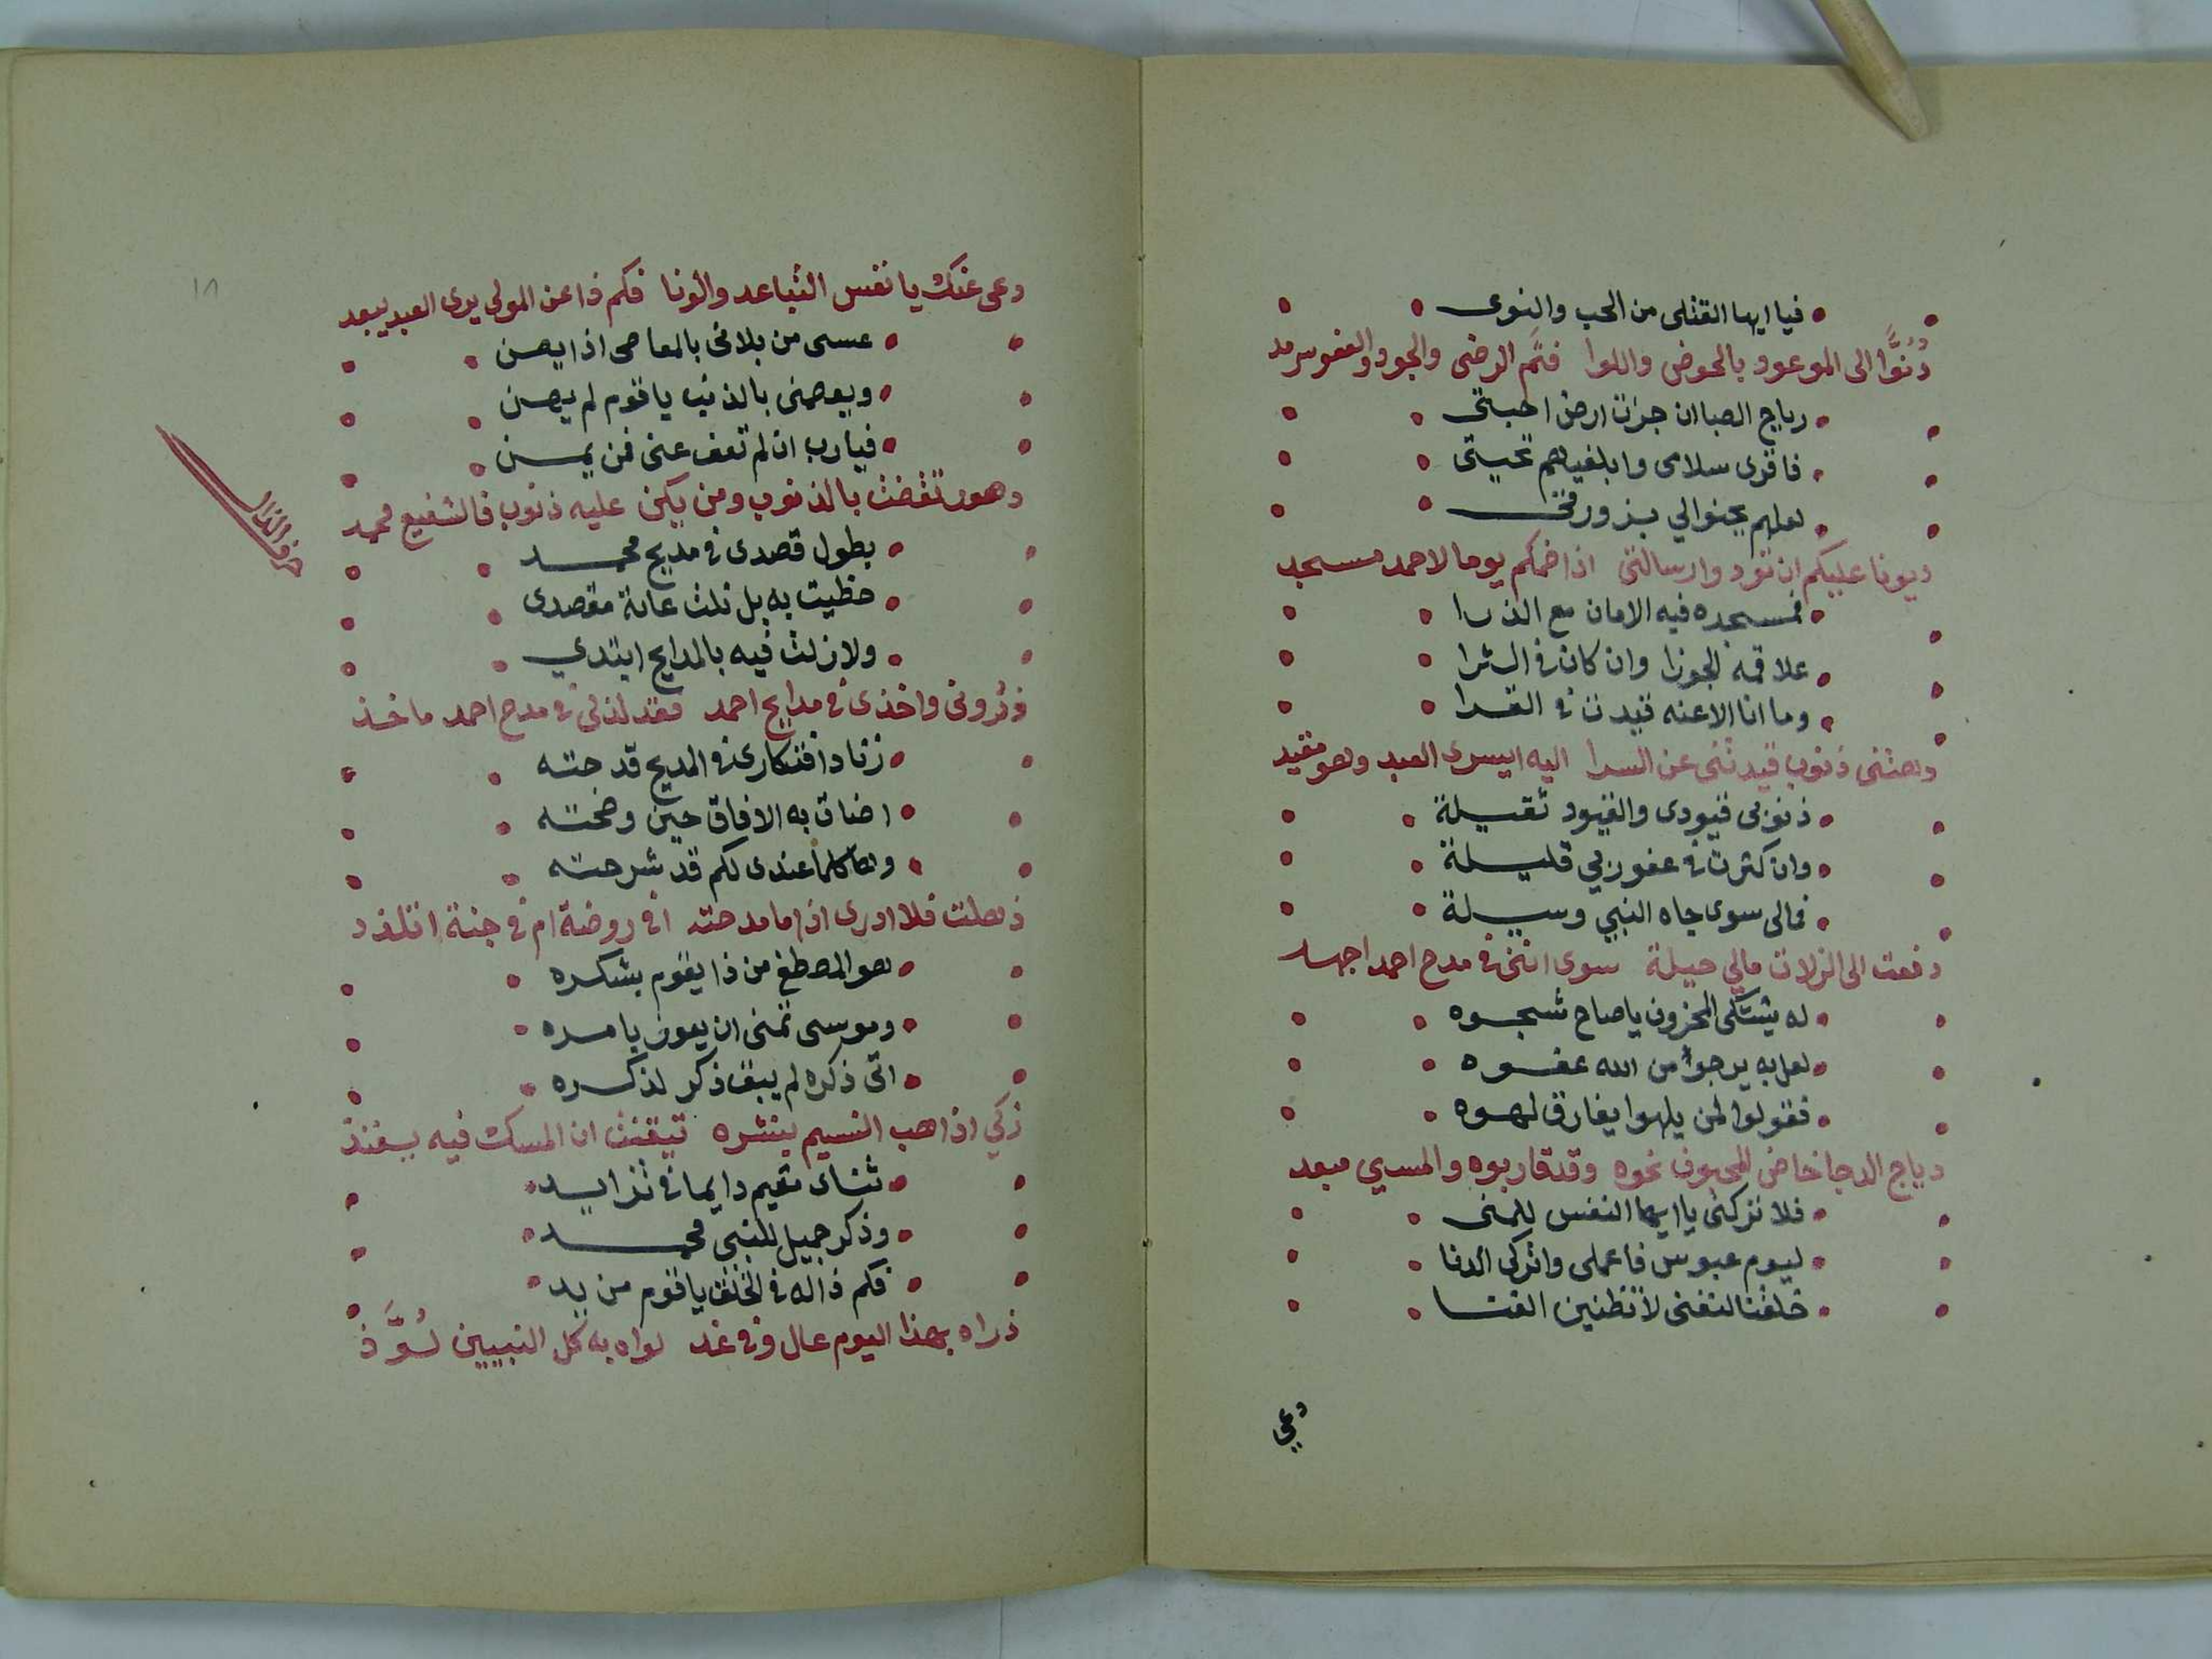 فيا ايها القتلى من الحب والنوى
دُنُوًّا الى الموعود بالحوض واللوا فثم الرضى والجود والعفو سرمد
رياح الصبا ان جزت ارض احبتي
فاقرى سلامى وابلغيهم تحيتى
لعلهم يحنوا لي بزورتى
ديونا عليكم ان تودوا رسالتى اذا ضمكم يوما لاحمد مسجد
فمسجده فيه الامان مع الذرا
علا قمه الجوزا وان كان فى الثرا
وما انا الا عنه قيدت فى القرا
دهتنى ذنوب قيدتنى عن السرا اليه ايسرى العبد وهو مقيد
ذنوبى قيودى والقيود ثقيلة
وان كثرت فى عفو ربي قليلة
فمالى سوى جاه النبي وسيلة
دفعت الى الزلات مالي حيلة سوى اننى فى مدح احمد اجهد
له يشتكى المحزون ياصاح شجوه
لعل به يرجوا من الله عفوه
فقولوا لمن يلهوا يفارق لهوه
دياج الدجا خاض المحبون نحوه وقد قاربوه والمسي مبعد
فلا تركنى يا ايها النفس للمنى
ليوم عبوس فاعملى واتركى الدنا
خلقنا لنفنى لا تظنين الفنا
دعي
دعى عنك يا نفس التباعد والونا فكم ذا عن المولى يرى العبد يبعد
عسى من بلانى بالمعاصى اذا يصن
ويعصمنى بالذنب ياقوم لم يصن
فيارب ان لم تعف عنى فمن يمن
دهور تقضت بالذنوب ومن يكن عليه ذنوب فالشفيع محمد
بطول قصدى فى مديح محمد
حظيت به بل نلت غاية مقصدى
ولا زلت فيه بالمدايح ابتدي
حرف الذال
ذرونى واخذى فى مدايح احمد فقد لذ لى فى مدح احمد ماخذ
زناد افتكارى فى المديح قدحته
اضات به الافاق حين وضحته
وها كلما عندى لكم قد شرحته
ذهلت فلا ادرى اذا ما مدحته افى روضة ام فى جنة اتلذد
هو المصطفى من ذا يقوم بشكره
وموسى تمنى ان يعون بامره
اتى ذكره لم يبق ذكر لذكره
ذكي اذا هب النسيم بنشره تيقنت ان المسك فيه ينفذ
ثناى مقيم دايما فى تزايد
وذكر جميل للنبي محمد
فكم ذا له فى الخلق ياقوم من يد
ذراه بهذا اليوم عال وفى غد لواه به كل النبيين لُوَّذ
١٨